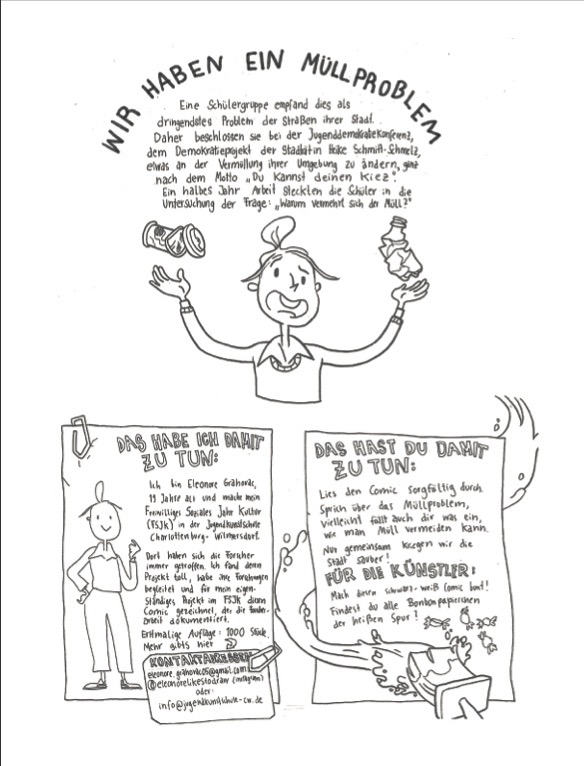 WIR HABEN EIN MÜLLPROBLEM
Eine Schülergruppe empfand dies als
dringendstes Problem der Straßen ihrer Stadt.
Daher beschlossen sie bei der Jugenddemokratiekonferenz,
dem Demokratieprojekt der Stadträtin Heike Schmitt-Schmelz,
etwas an der Vermüllung ihrer Umgebung zu ändern, ganz
nach dem Motto „Du kannst deinen Kiez!"
Ein halbes Jahr Arbeit steckten die Schüler in die
Untersuchung der Frage: „Warum vermehrt sich der Müll?"
DAS HABE ICH DAMIT
ZU TUN:
Ich bin Eleonore Grahovac,
19 Jahre alt und mache mein
Freiwilliges Soziales Jahr Kultur
(FSJK) in der Jugendkunstschule
Charlottenburg-Wilmersdorf.
Dort haben sich die Forscher
immer getroffen. Ich fand deren
Projekt toll, habe ihre Forschungen
begleitet und für mein eigen-
ständiges Projekt im FSJK diesen
Comic gezeichnet, der die
arbeit dokumentiert.
Erstmalige Auflage: 1000 Stück.
Mehr gibts hier
KONTAKTADRESSEN
eleonore.grahovac05@gmail.com
@eleonorelikestodraw (instagram)
oder:
info@jugendkunstschule-cw.de
DAS HAST DU DAMIT
ZU TUN:
Lies den Comic sorgfältig durch.
Sprich über das Müllproblem,
vielleicht fällt auch dir was ein,
wie man Müll vermeiden kann.
Nur gemeinsam kriegen wir die
Stadt sauber!
FÜR DIE KÜNSTLER:
Mach diesen schwarz-weiß Comic bunt!
Findest du alle Bonbonpapierchen
der heißen Spur?